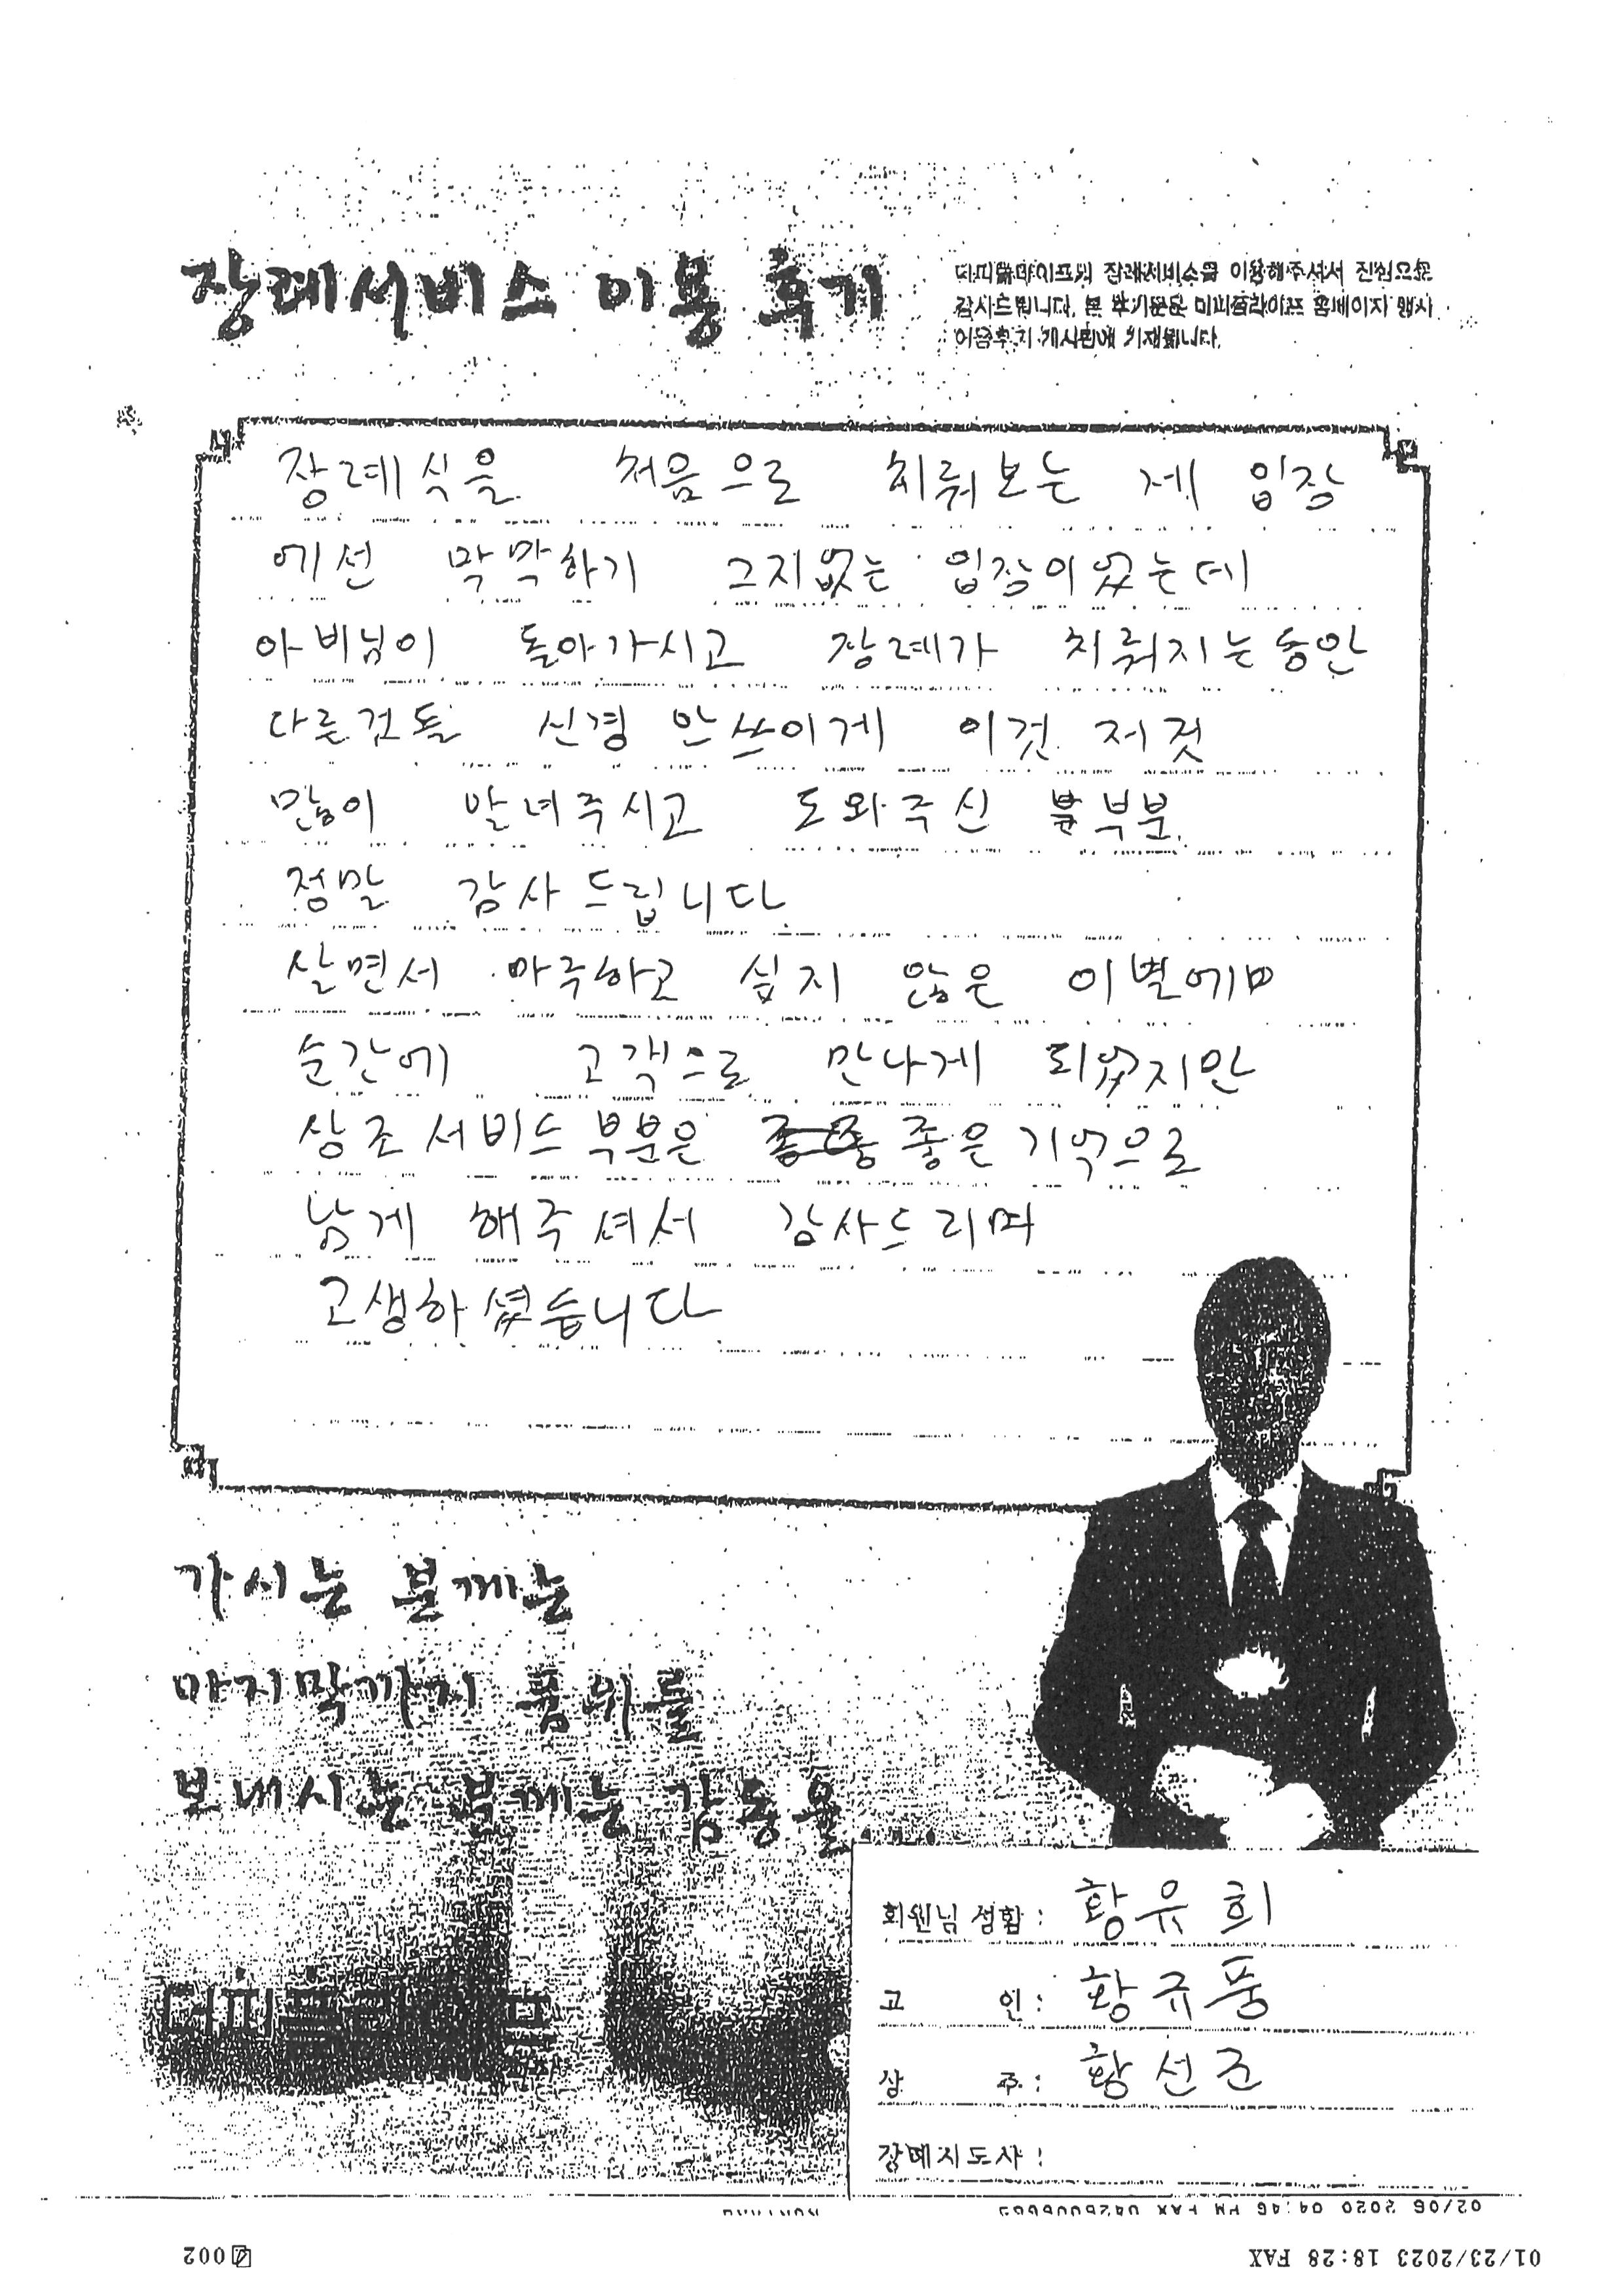 장례서비스 이용 후기
더피플라이프의 장례서비스를 이용해주셔서 진심으로
감사드립니다. 본 후기문은 더피플라이프 홈페이지 행사
이용후기 게시판에 기재됩니다.
장례식을 처음으로 치뤄보는 제 입장
에선 막막하기 그지없는 입장이었는데
아버님이 돌아가시고 장례가 치뤄지는동안
다른것들 신경 안쓰이게 이것 저것
많이 알녀주시고 도와주신 부분
정말 감사드립니다
살면서 마주하고 싶지 않은 이별에
순간에 고객으로 만나게 되었지만
상조서비스부분은 좋은기억으로
남게 해주셔서 감사드리며
고생하셨습니다
가시는 분께는
마지막까지 품위를
보내시는 분께는 감동을
더피플라이프
회원님 성함 : 황유희
고 인 : 황규풍
상 주 : 황선근
장례지도사 :
02/06 2020 04:46 PM FAX
01/23/2023 18:28 FAX
002